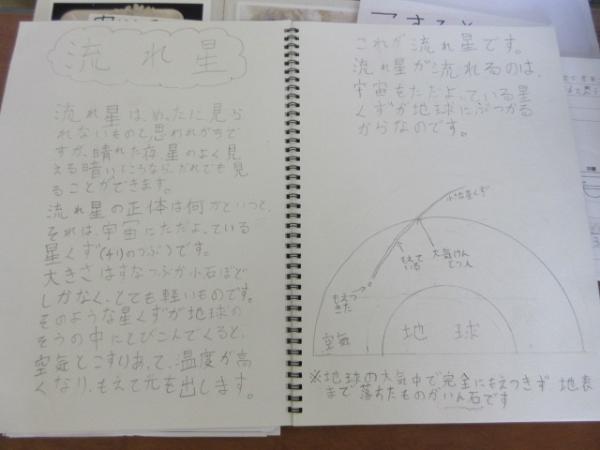 流れ星
流れ星は、めったに見ら
れないものと、思われがちで
すが、晴れた夜、星のよく見
える暗いところなら、だれでも見
ることができます。
流れ星の正体は何かというと、
それは、宇宙にただよっている
星くず(チリのつぶ)です。
大きさはすなつぶか小石ほど
しかなく、とても軽いものです。
そのような星くずが地球の
そうの中にとびこんでくると、
空気とこすりあって、温度が高
くなり、もえて光を出します。
これが流れ星です。
流れ星が流れるのは、
宇宙をただよっている星
くずが地球にぶつかる
からなのです。
小さな星くず
大気けん
とつ入
もえて
いる
もえつ
きた
空気
地球
※地球の大気中で完全にもえつきず地表
まで落ちたものがいん石です